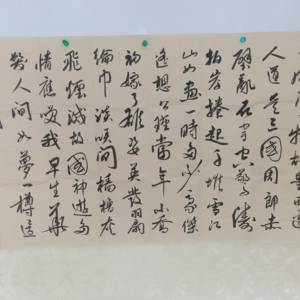 物故垒西边
人道是三國周郎赤
壁乱石穿空惊涛
拍岸捲起千堆雪江
山如画一时多少豪傑
遥想公瑾當年小喬
初嫁了雄姿英发羽扇
綸巾談笑间樯橹灰
飛煙滅故國神遊多
情應笑我早生華
髮人间如夢一樽還